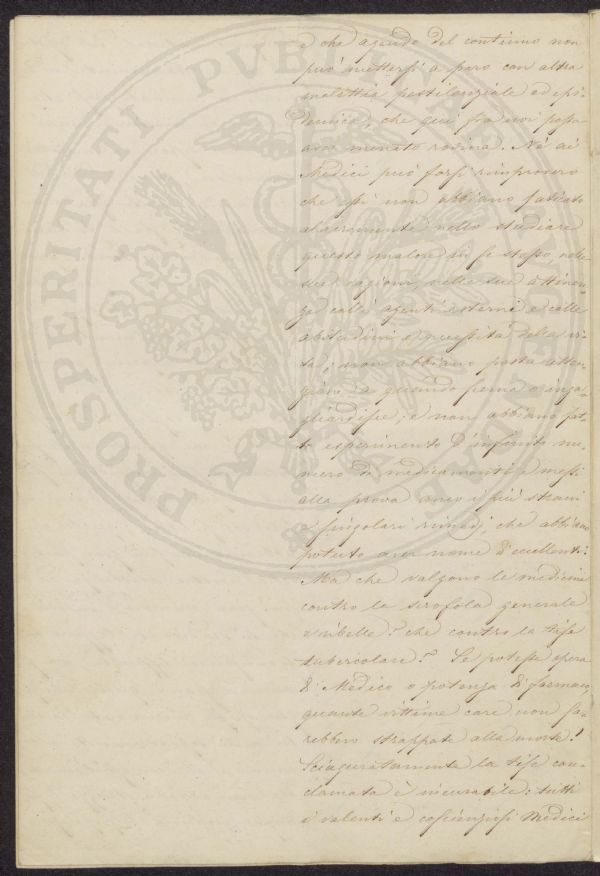 e che agendo del continuo non
può mettersi a paro con altra
malattia pestilenziale ed epi-
demica, che quì fra noi possa
aver menato rovina. Nè ai
Medici può farsi rimprovero
che essi non abbiano faticato
alacremente nello studiare
questo malore in se stesso, nelle
sue cagioni, nelle sue attinen-
ze colli agenti esterni e colle
abitudini e necessità della vi-
ta; non abbiano posta atten-
zione a quando frena o inga-
gliardisce; e non abbiano fat-
to esperimento d'infinito nu-
mero di medicamenti e messi
alla prova anco i più strani
e singolari rimedj, che abbiano
potuto aver nome d'eccellenti.
Ma che valgono le medicine
contro la scrofola generale
e ribelle? che contro la tise
tubercolare? Se potesse opera
di Medico o potenza di farmaco,
quante vittime care non sa-
rebbero strappate alla morte!
Sciaguratamente la tise con-
clamata è incurabile: tutti
i valenti e coscienziosi Medici
PROSPERITATI PVBLICAE